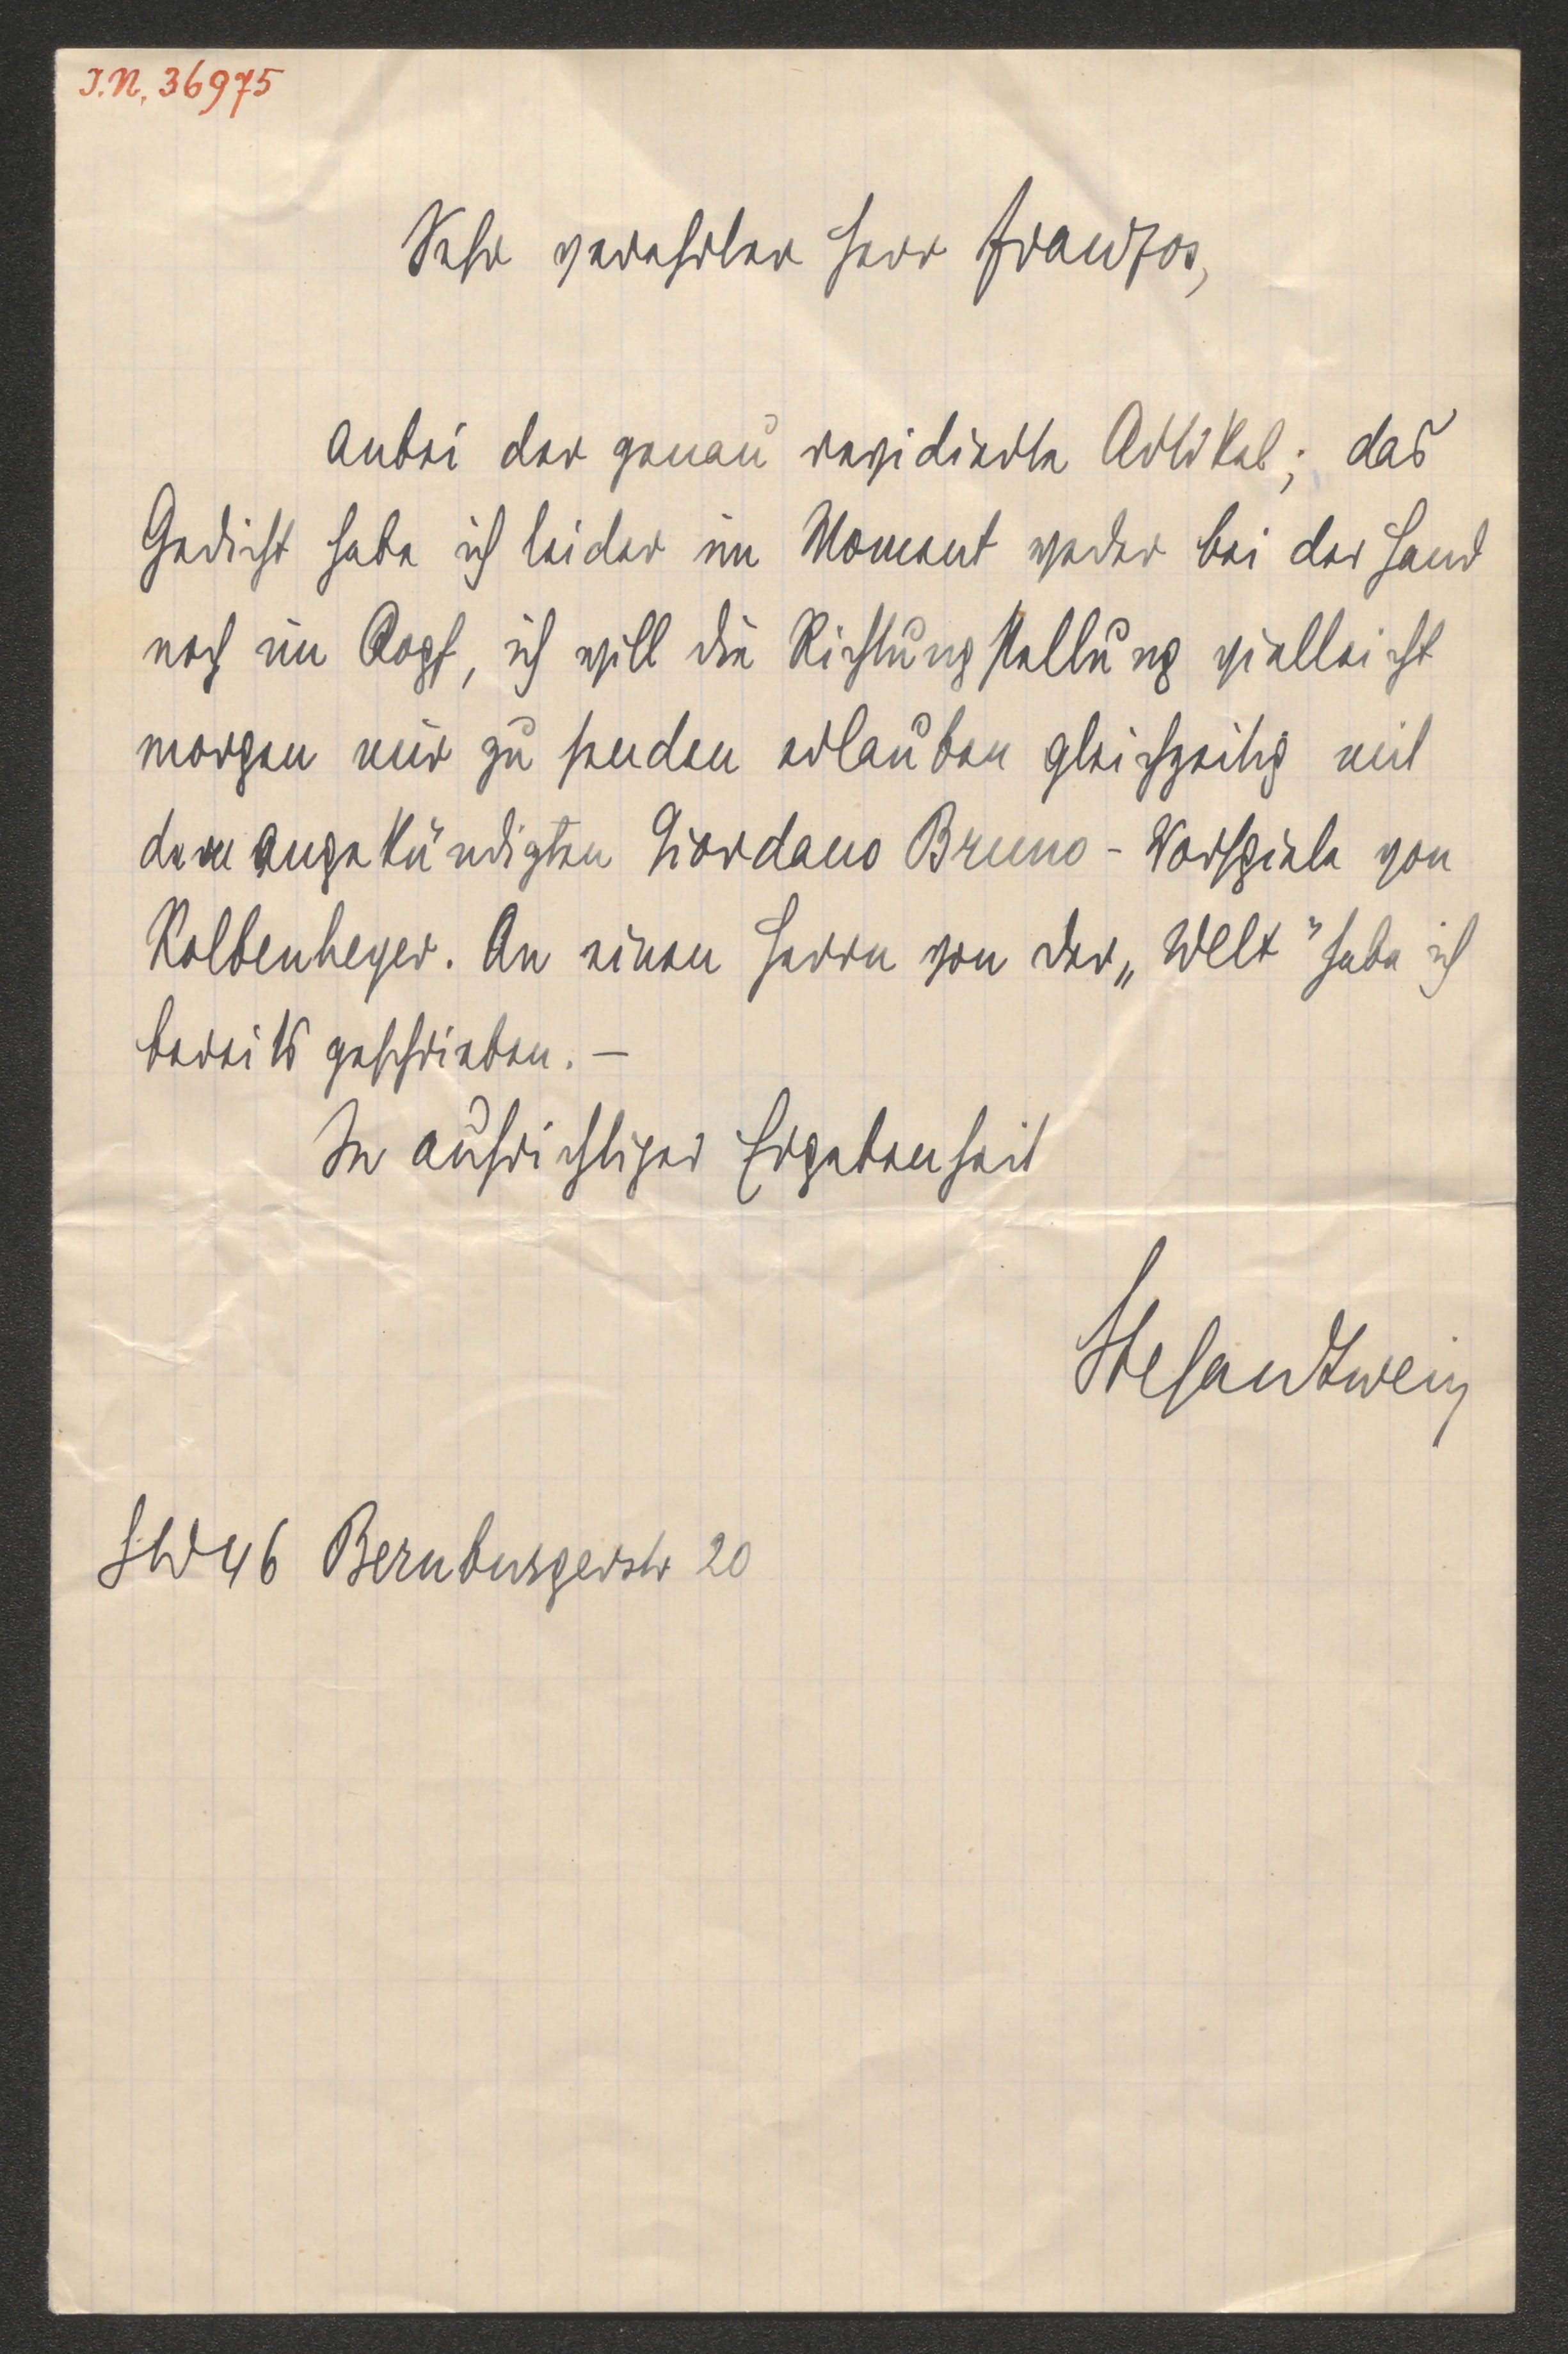 J.N. 36975
Sehr verehrter Herr Franzos,
anbei der genau revidierte Artikel; das
Gedicht habe ich leider im Moment weder bei der Hand
noch im Kopf, ich will die Richtungstellung vielleicht
morgen mir zu senden erlauben gleichzeitig mit
dem angekündigten Giordano Bruno - Vorspiele von
Kolbenheyer. An einen Herrn von der „Welt" habe ich
bereits geschrieben. —
In aufrichtiger Ergebenheit
Stefan Zweig
SW 46 Bernburgerstr 20